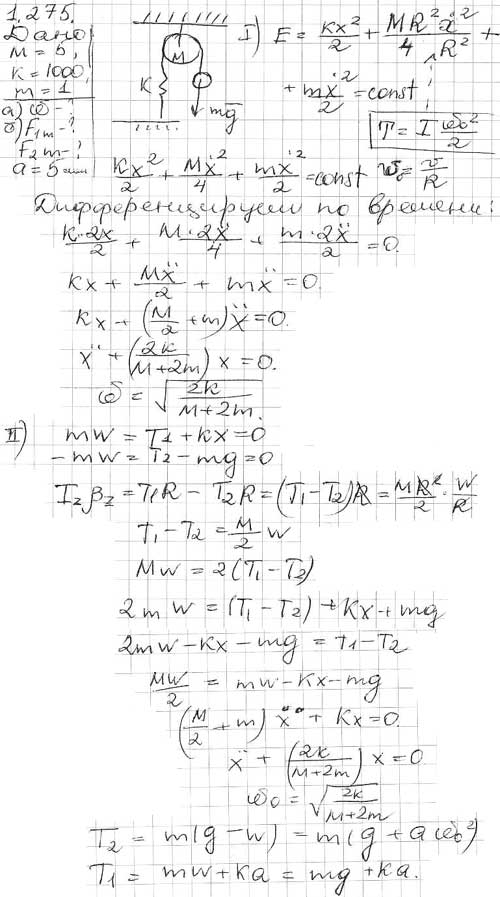 1.275.
Дано
M = 5,
k = 1000,
m = 1
а) ω - ?
б) F₁m - ?
F₂m - ?
a = 5 мм
M
K
mg
I) E = kx²/2 + MR²ẋ²/4R² +
+ mẋ²/2 = const
T = I ω₀²/2
kx²/2 + Mẋ²/4 + mẋ²/2 = const ω₀ = v/R
Дифференцируем по времени:
k·2x/2 + M·2ẍ/4 + m·2ẍ/2 = 0.
kx + Mẍ/2 + mẍ = 0.
kx + (M/2 + m)ẍ = 0.
ẍ + (2k/(M+2m)) x = 0.
ω = √(2k/(M+2m)).
II) mw = T1 + kx = 0
-mw = T2 - mg = 0
I_z β_z = T₁R - T₂R = (T₁ - T₂)R = MR²/2 · w/R
T₁ - T₂ = M/2 w
Mw = 2(T₁ - T₂)
2mw = (T₁ - T₂) + kx + mg
2mw - kx - mg = T1 - T2
Mw/2 = mw - kx - mg
(M/2 + m) ẍ + kx = 0.
ẍ + (2k/(M+2m)) x = 0
ω₀ = √(2k/(M+2m))
T₂ = m(g - w) = m(g + aω₀²)
T₁ = mw + ka = mg + ka.